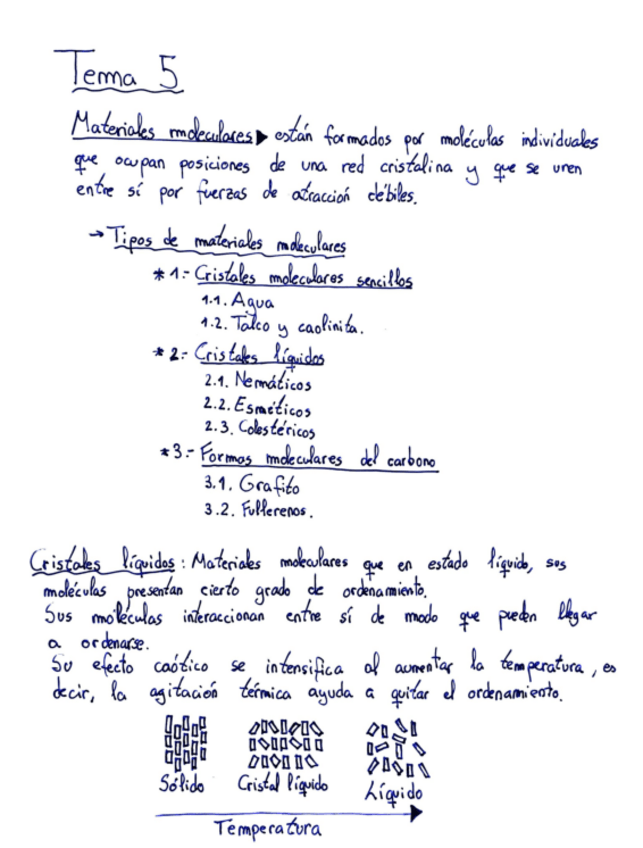 Tema 5
Materiales moleculares ▶ están formados por moléculas individuales
que ocupan posiciones de una red cristalina y que se unen
entre sí por fuerzas de atracción débiles.
→ Tipos de materiales moleculares
* 1.- Cristales moleculares sencillos
1.1. Agua
1.2. Talco y caolinita.
* 2.- Cristales líquidos
2.1. Nermáticos
2.2. Esméticos
2.3. Colestéricos
* 3.- Formas moleculares del carbono
3.1. Grafito
3.2. Fullerenos.
Cristales líquidos : Materiales moleculares que en estado líquido, sus
moléculas presentan cierto grado de ordenamiento.
Sus moléculas interaccionan entre sí de modo que pueden llegar
a ordenarse.
Su efecto caótico se intensifica al aumentar la temperatura, es
decir, la agitación térmica ayuda a quitar el ordenamiento.
Sólido Cristal líquido Líquido
Temperatura